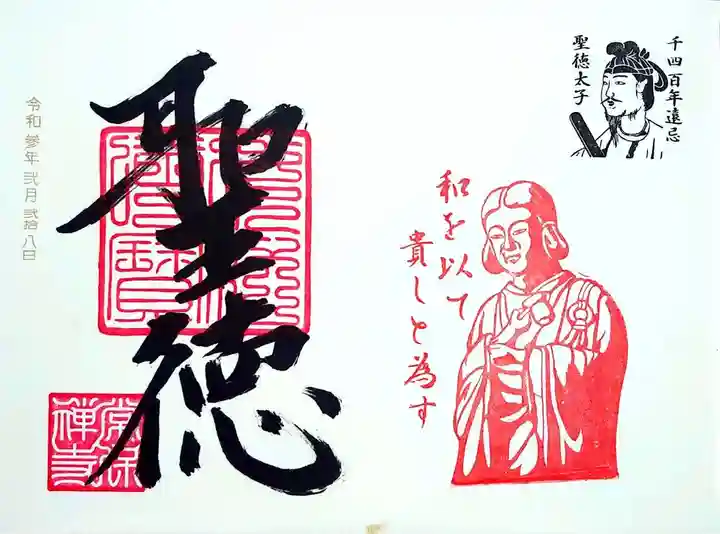 千四百年遠忌
聖徳太子
和を以て
貴しと為す
聖徳
令和参年弐月弐拾八日
常保
禅寺